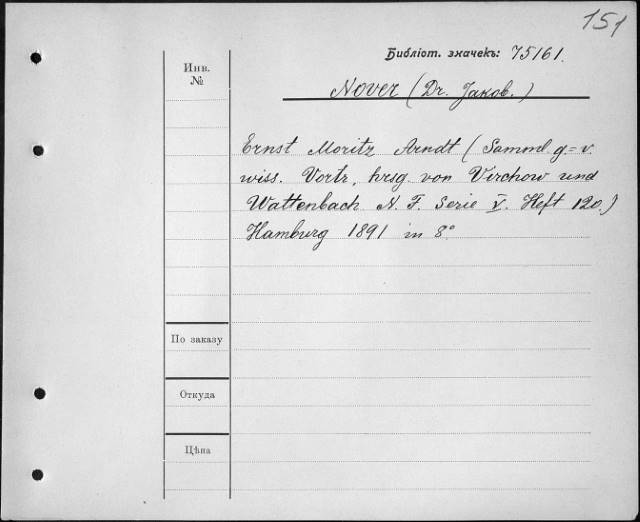 151
Библіот. значекъ: 75161.
Инв.
№
Nover (Dr. Jакоб.)
Ernst Moritz Arndt (Samml. g.=v.
wiss. Vortr., hrsg. von Virchow und
Wattenbach N. F. Serie V. Heft 120.)
Hamburg 1891 in 8°.
По заказу
Откуда
Цѣна